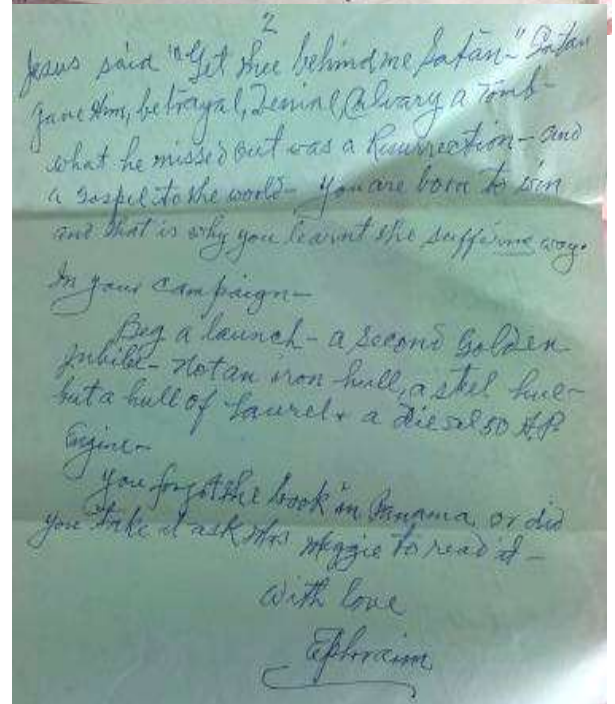 2
Jesus said "Get thee behind me Satan-" Satan
gave Him, betrayal, Denial, Calvary a Tomb-
what he missed out was a Resurrection - and
a Gospel to the world - you are born to win
and that is why you learnt the suffering way.
In your campaign-
Beg a launch - a second Golden
Jubilee - Not an iron hull, a steel hull-
but a hull of Laurel & a Diesel 50 H.P.
Engine-
You forgot the book in Panama, or did
you take it ask Mrs Meggie to read it -
With love
Ephraim